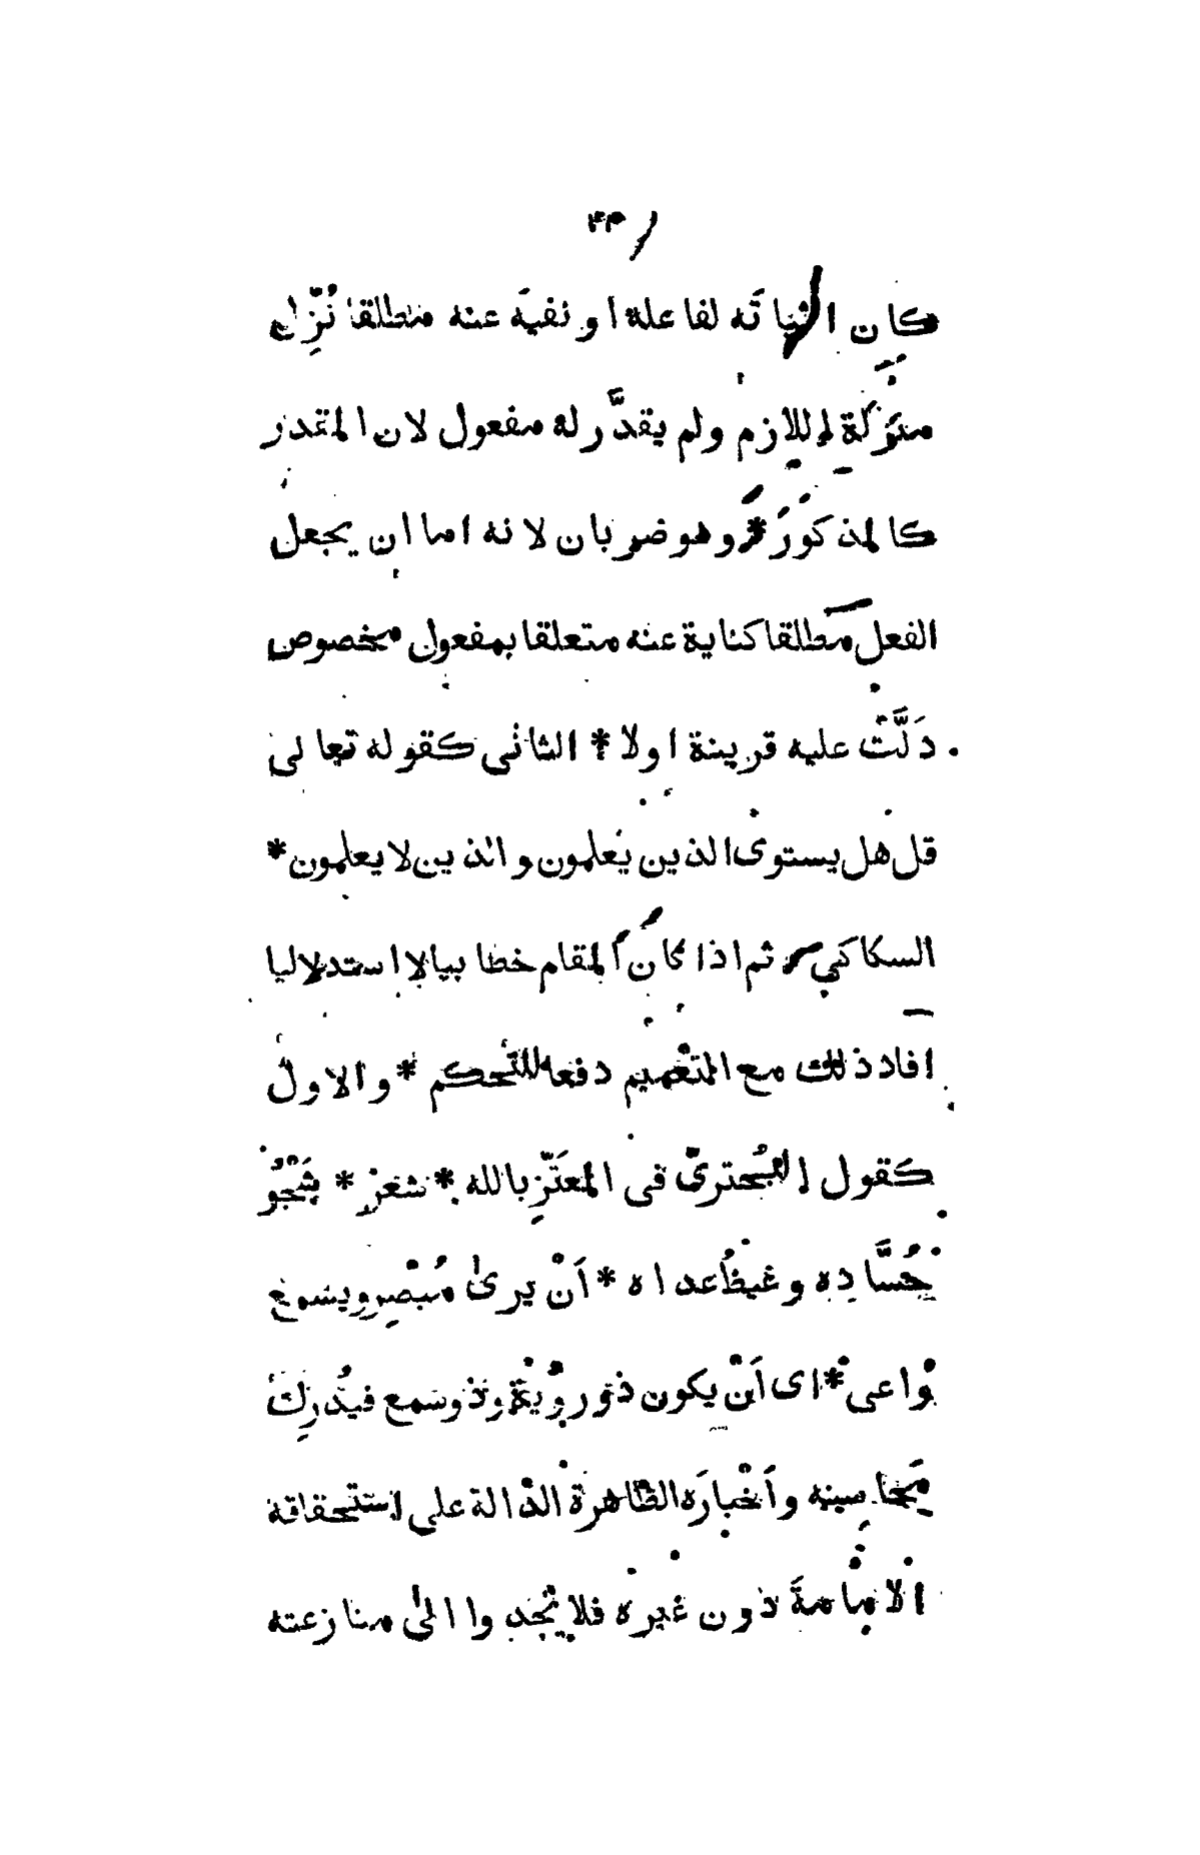 ٣٣
كان اثباته لفاعله او نفيه عنه مطلقا نُزِّل
منزلة اللازم ولم يقدَّر له مفعول لان المقدر
كالمذكور * وهو ضربان لانه اما ان يجعل
الفعل مطلقا كناية عنه متعلقا بمفعول مخصوص
دَلَّتْ عليه قرينة اولا * الثانى كقوله تعالى
قل هل يستوى الذين يعلمون والذين لا يعلمون *
السكاكي ثم اذا كان المقام خطابيا لا استدلاليا
افاد ذلك مع التعميم دفعا للتحكم * والاول
كقول البُحترىّ فى المعتَزّ بالله * شعر * شَجْوُ
حُسَّاده وغيظُ عداه * اَنْ يرىٰ مُبْصِر ويسمع
واعى * اى اَنْ يكون ذو رؤية وذو سمع فيُدرِك
مَحاسِنه واَخْبارَه الظاهرة الدالة على استحقاقه
الامامةَ دون غيره فلا يجدوا الىٰ منازعته